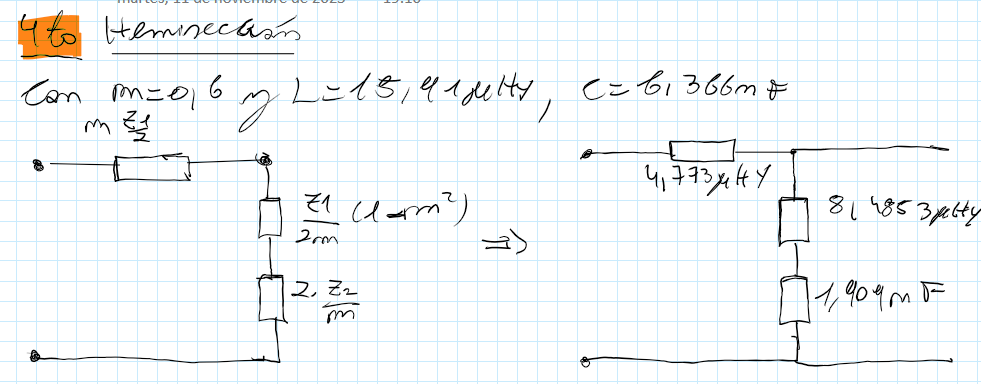 martes, 11 de noviembre de 2025 19:10
4to Hemisección
Con m=0,6 y L=15,91µHy, C=6,366nF
m Z1/2
Z1/2m (1-m²)
2. Z2/m
=>
4,773µHY
8,4853µHy
1,909nF